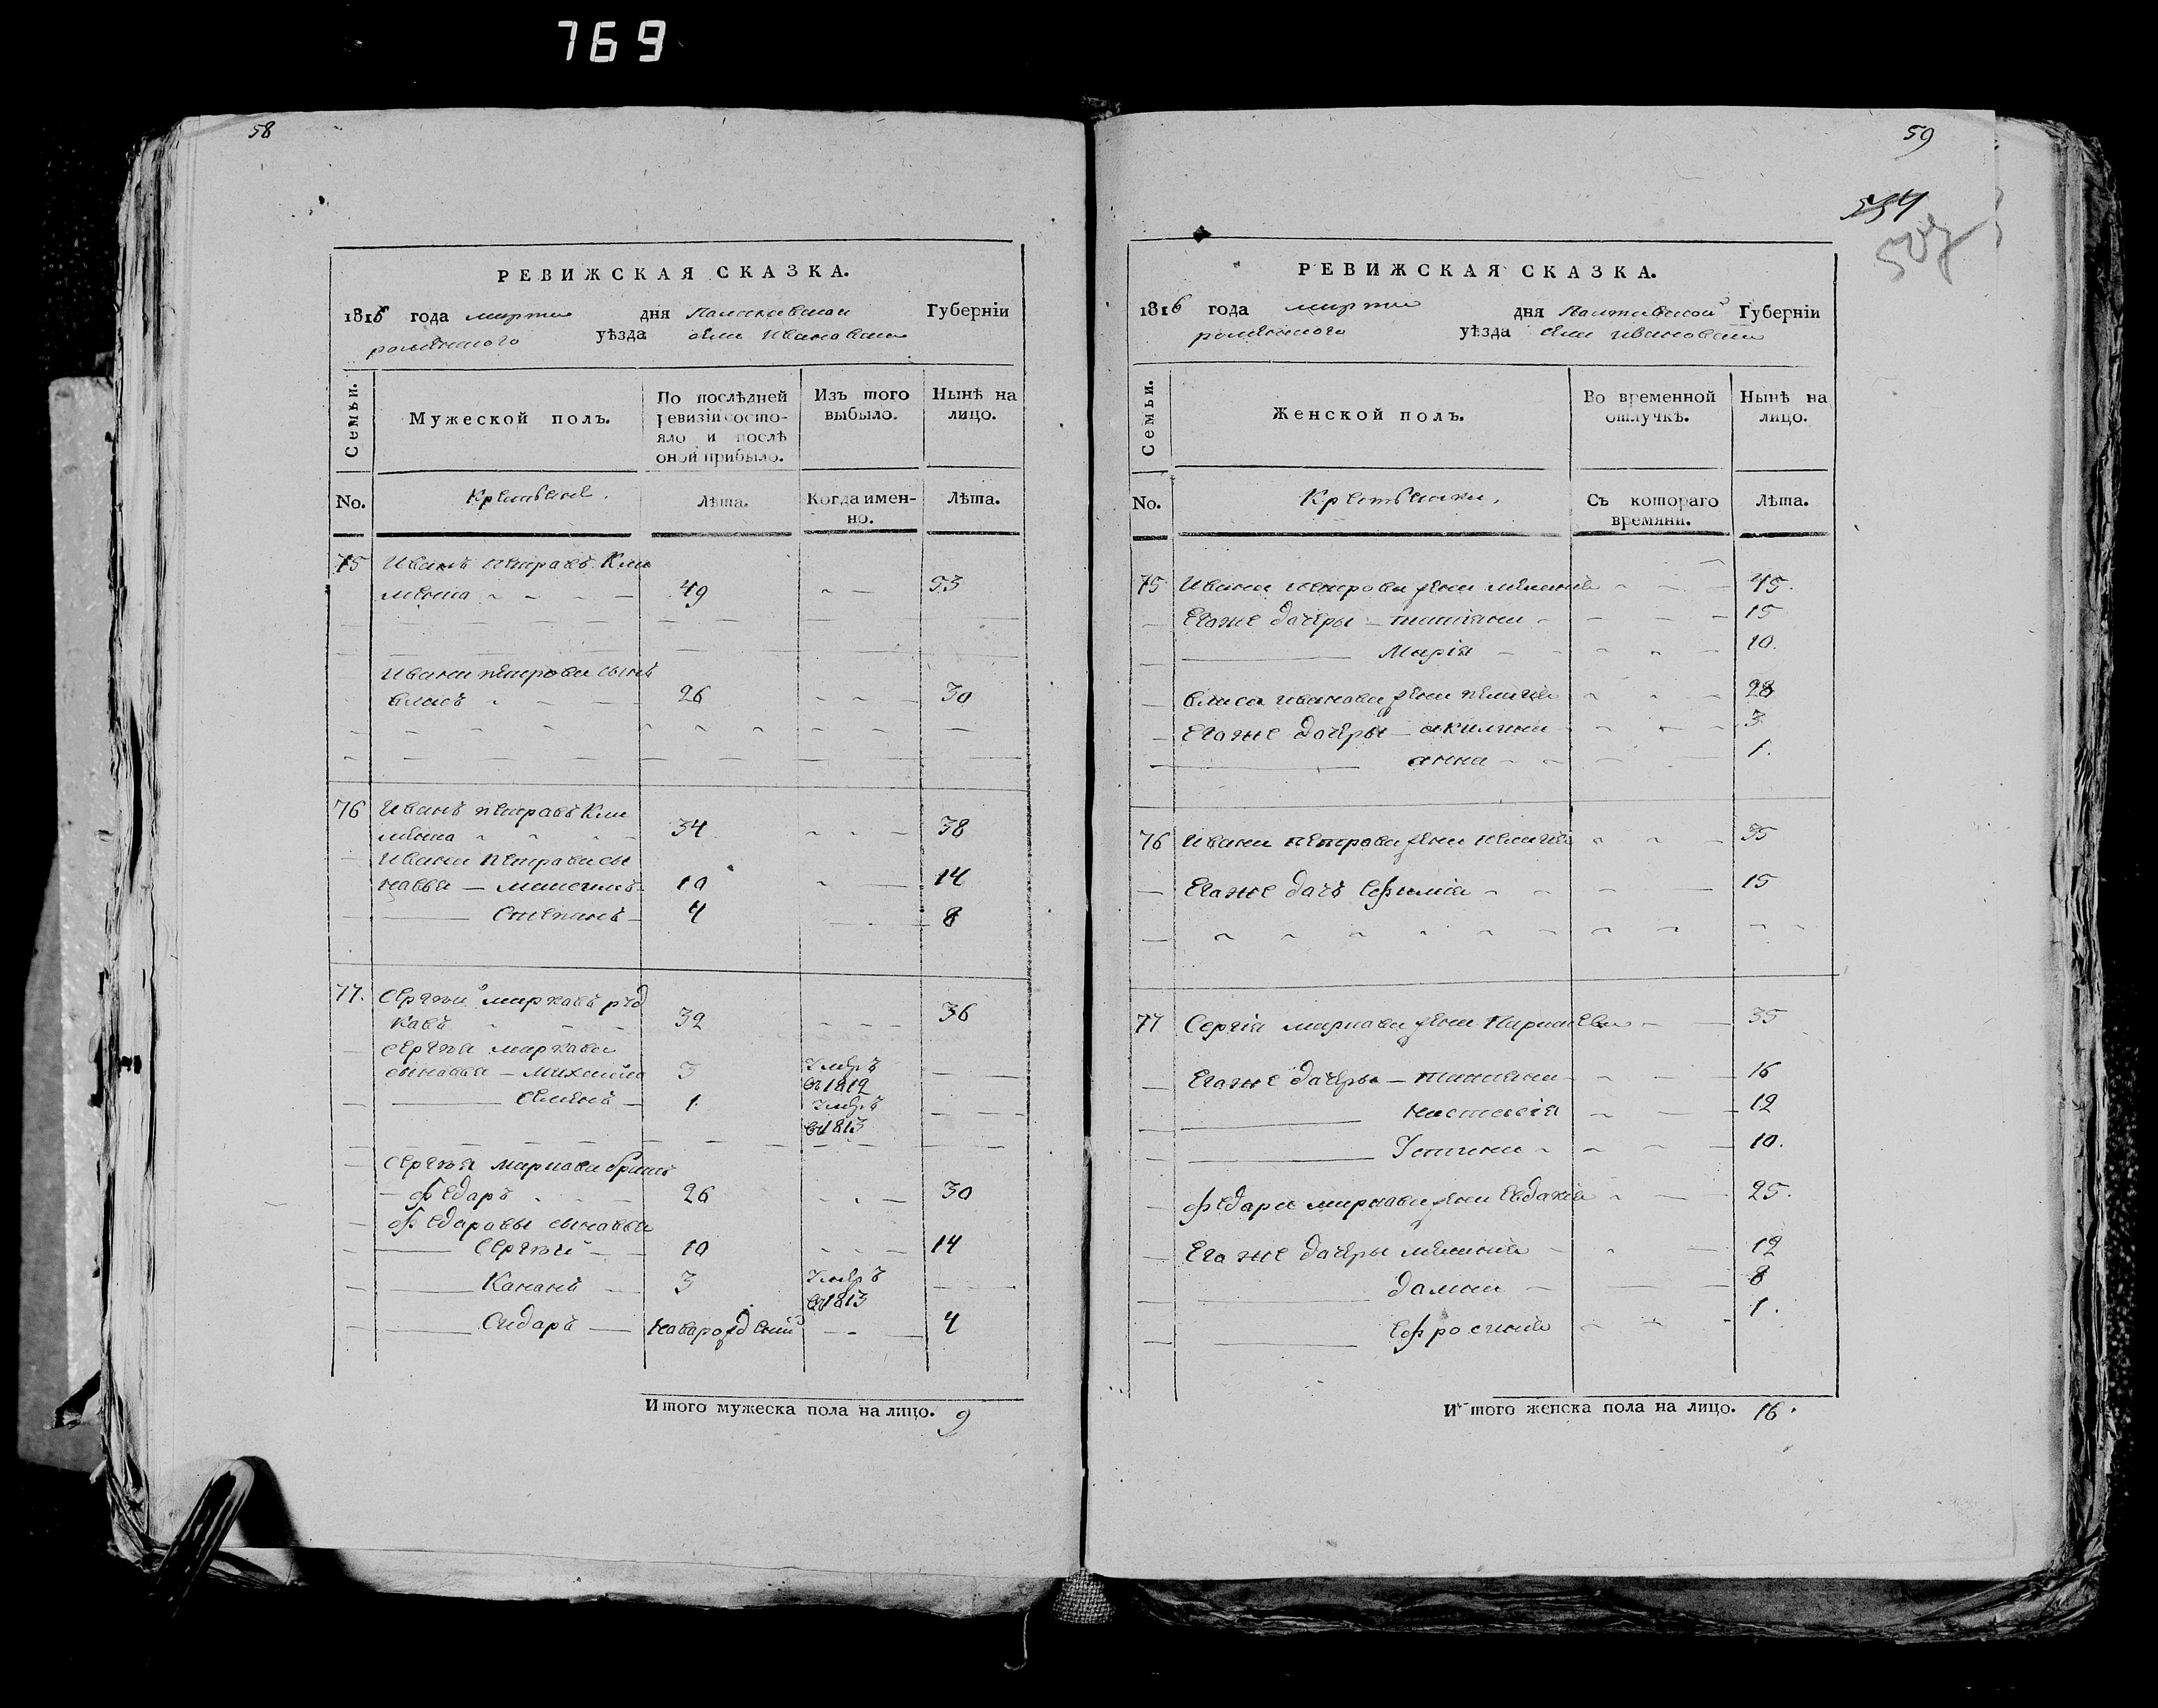 769
58
РЕВИЖСКАЯ СКАЗКА.
1816 года марта дня Полтавской Губерніи
роменского уѣзда села Ивановки
Семьи.
Мужеской полъ.
По послѣдней ревизіи состо-
яло и послѣ
оной прибыло.
Изъ того
выбыло.
Нынѣ на
лицо.
No.
Крестьяне.
Лѣта.
Когда имен-
но.
Лѣта.
75 Иванъ петровъ
49 53
Ивана петрова сынъ
власъ 26 30
76 Иванъ петровъ
34 38
Ивана петрова сы
новья 10 14
Степанъ 4 8
77. Сергѣй марковъ
32 36
Сергѣя маркова
сыновья – Михайло 3 Умеръ
въ 1812
Семенъ 1. Умеръ
въ 1813
Сергѣя маркова братъ
Федаръ 26 30
Федаравы сыновья
Сергѣй 10 14
Кананъ 3 Умеръ
въ 1813
Сидаръ наварожденный 4
Итого мужеска пола на лицо. 9
59
554
РЕВИЖСКАЯ СКАЗКА.
1816 года марта дня Полтавской Губерніи
роменского уѣзда села Ивановки
Семьи.
Женской полъ.
Во временной
отлучкѣ.
Нынѣ на
лицо.
No.
Крестьянки.
Съ котораго
времяни.
Лѣта.
75 Ивана петрова жена меланія 45.
Егоже дочеры – татіяна 15
Марія 10.
власа иванова жена пелагія 28
Егоже дочеры – акилина 3
анна 1.
76 Ивана петрова жена пелагія 35
Егоже дочь Ефимія 15
77 Сергія маркова жена 35
Егоже дочеры – татияна 16
настасія 12
Устина 10.
Федара маркова жена Евдакія 25.
Егоже дочеры меланія 12
домна 8
Ефросинія 1.
Итого женска пола на лицо. 16.